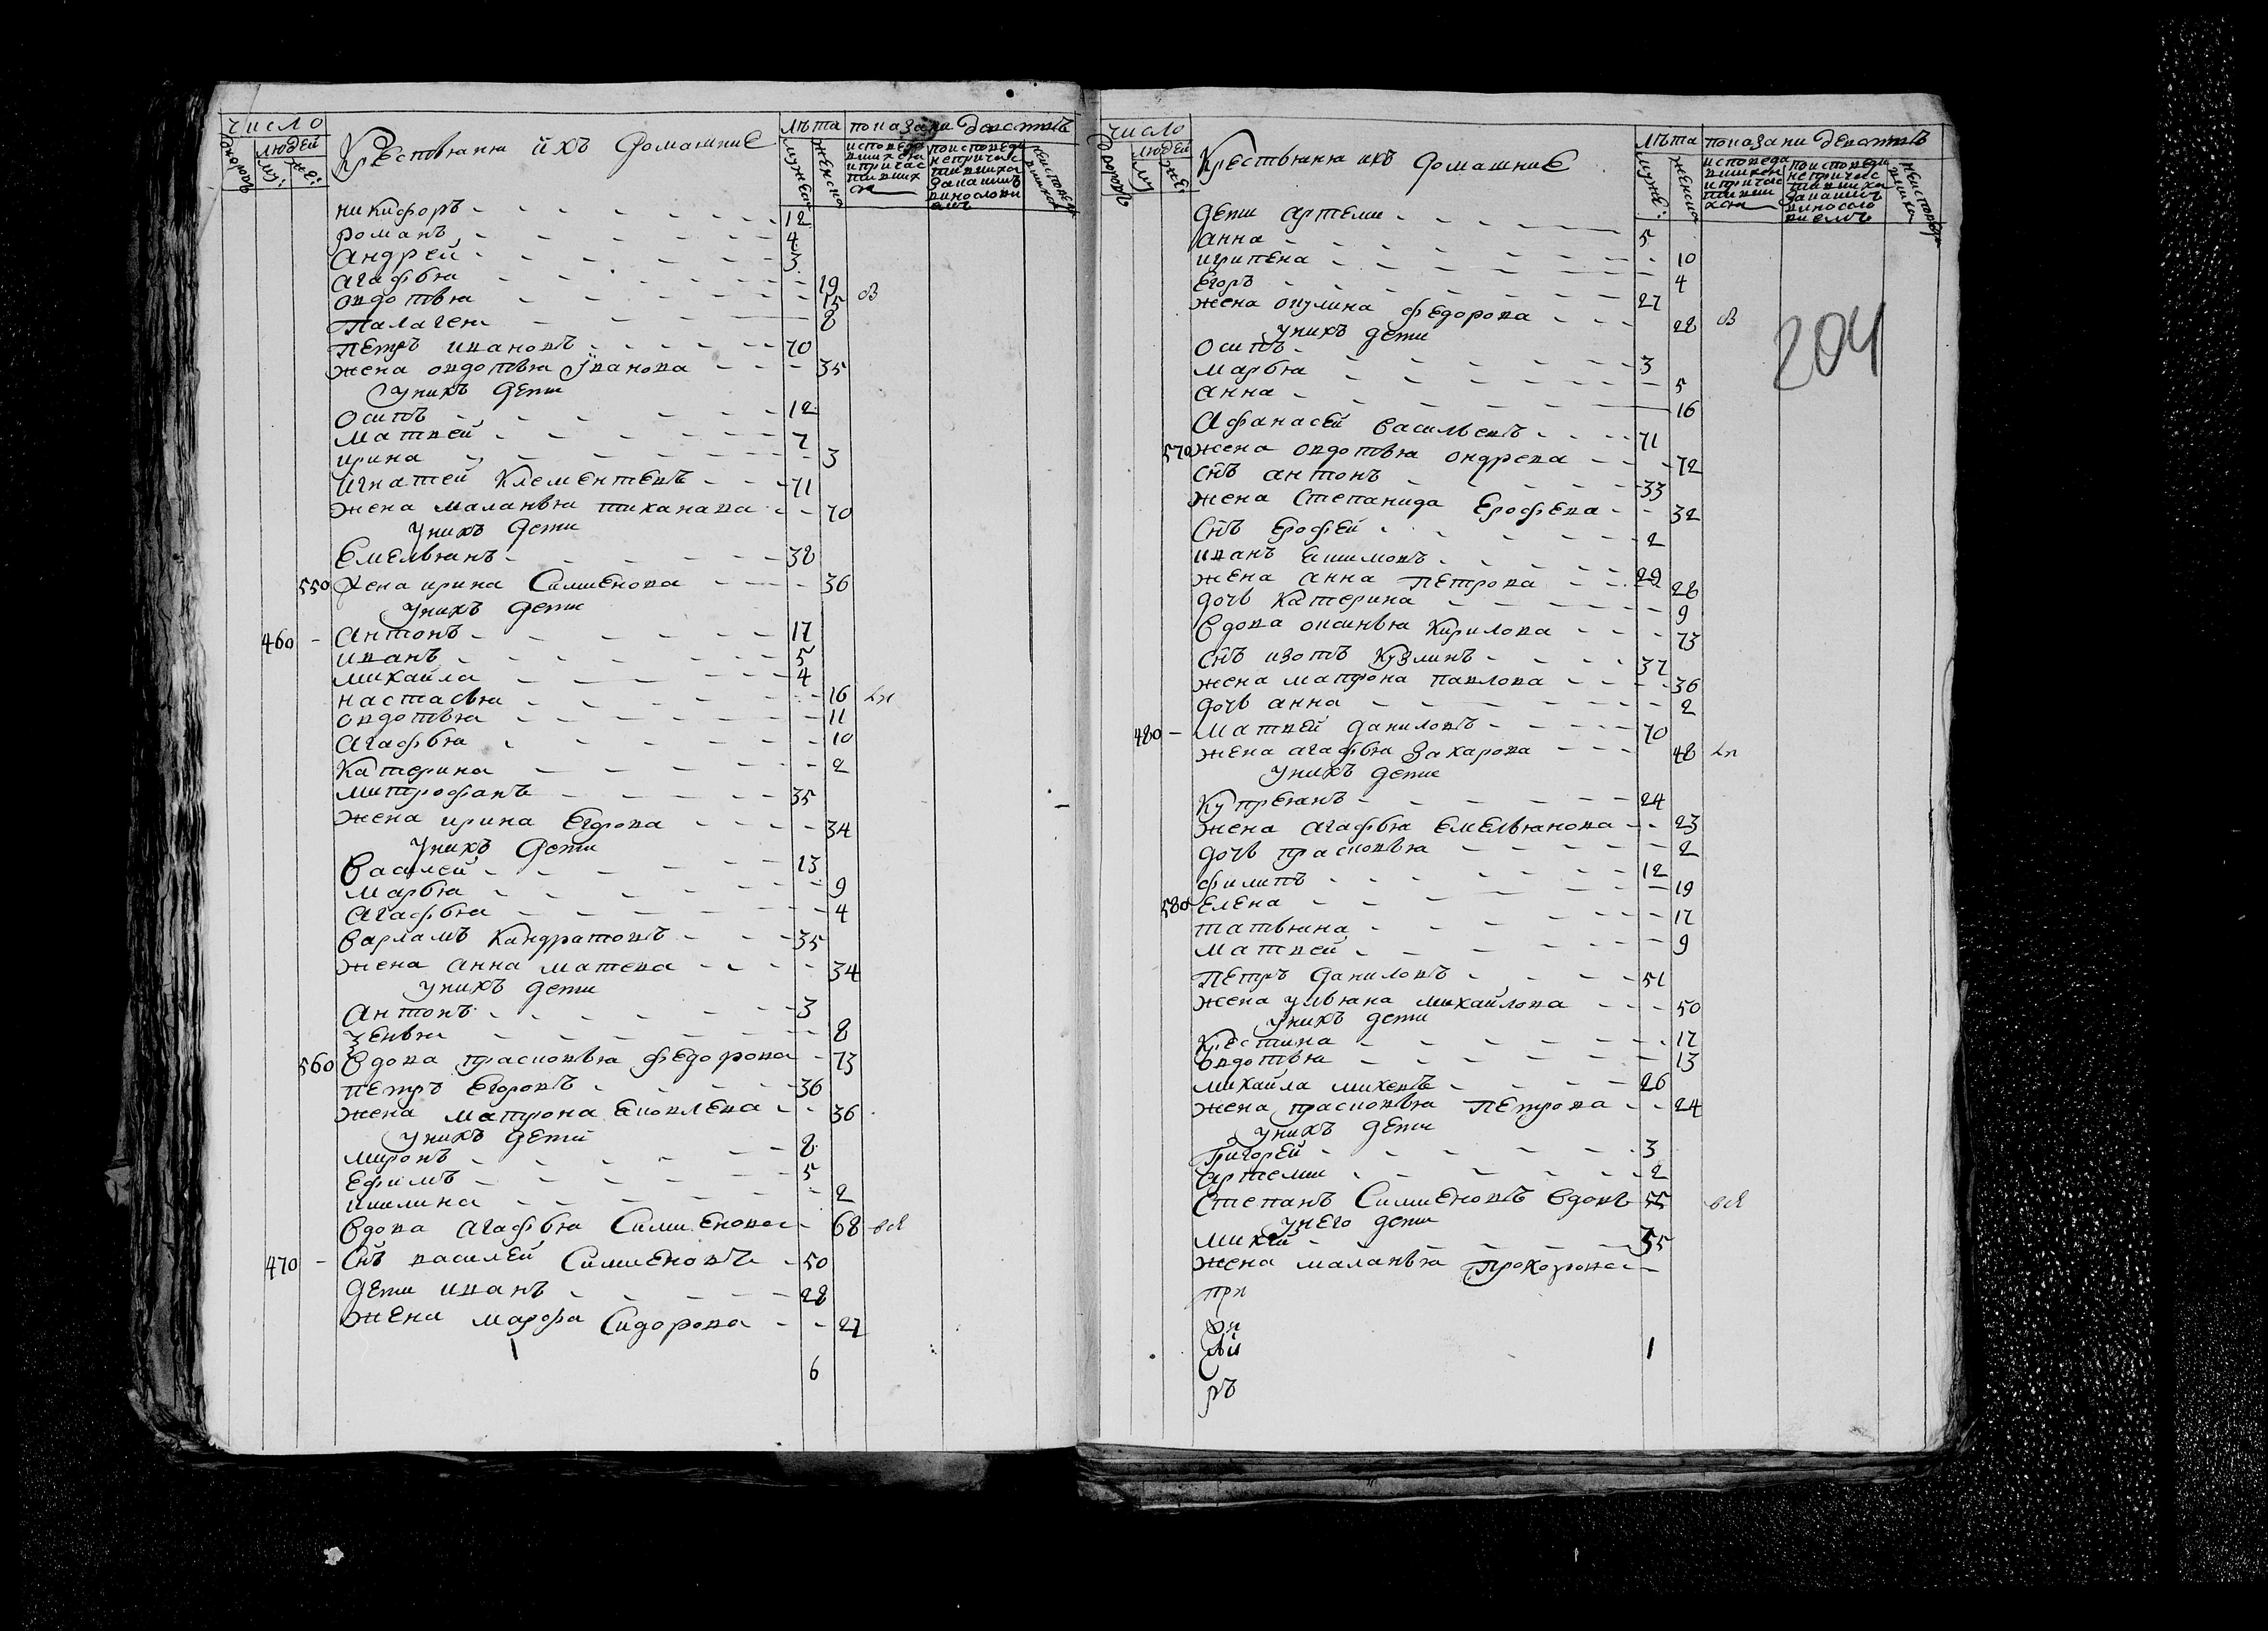 число
людей
Крестьяня ихъ домашние
лѣта показани действъ
никифоръ 12
романъ 4
Андрей 3
агафья 19
овдотья 15
Палагея 8
Петръ ивановъ 70
жена овдотья Іванова 35
У нихъ дети
Осипъ 12
матвей 7
ирина 3
игнатей Клементевъ 71
жена маланья тиханава 70
У нихъ дети
Емельянъ 38
550 жена ирина Симиенова 36
У нихъ дети
460 Антонъ 17
иванъ 5
михайла 4
настасья 16
овдотья 11
Агафья 10
Катерина 2
митрофанъ 35
жена ирина Егорова 34
У нихъ дети
Василей 13
марья 9
Агафья 4
Варламъ Кандратовъ 35
жена анна матвева 34
У нихъ дети
Антонъ 3
зенвья 8
560 Вдова прасковья федорова 73
петръ Егоровъ 36
жена матрона 36
У нихъ дети
миронъ 8
Ефимъ 5
2
Вдова агафья Симиенова 68
470 Снъ василей Симиеновъ 50
дети иванъ 28
жена марфа Сидорова 27
6
число
людей
Крестьяня ихъ домашние
лѣта показани действъ
204
дети артеми 5
анна 10
игрипена 4
Егоръ 27
жена окулина федорова 28
У нихъ дети
Осипъ 3
марья 5
анна 16
Афанасей васильевъ 71
570 жена овдотья ондрева 72
снъ антонъ 33
жена Степанида Ерофева 32
Снъ Ерофей 2
иванъ 29
жена анна петрова 28
дочь Катерина 9
Вдова оксинья Кирилова 73
Снъ изотъ Кузминъ 37
жена матрона павлова 36
дочь анна 2
480 матвей даниловъ 70
жена агафья Захарова 48
У нихъ дети
Купреянъ 24
жена агафья Емельянова 23
дочь прасковья 2
филипъ 12
580 Елена 19
татьяна 17
матвей 9
Петръ даниловъ 51
жена ульяна михайлова 50
У нихъ дети
Крестина 17
овдотья 13
михайла михевъ 26
жена прасковья Петрова 24
У нихъ дети
Григорей 3
Артемии 2
Степанъ Симиеновъ вдовъ 55
У него дети
михей 35
жена маланья Прохорова
при
ръ
1